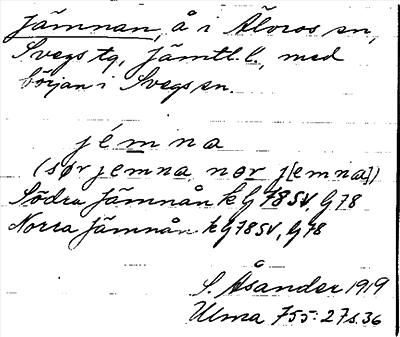 Jämnan, å i Älvros sn,
Svegs tg, Jämtl. l., med
början i Svegs sn.
jémna
(sør jemna, nor j[emna])
Södra Jämnån k G78SV, G78
Norra Jämnån k G78SV, G78
S. Åsander 1919
Ulma 755:27 s. 36